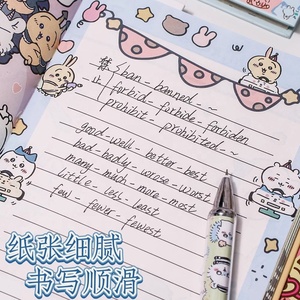 禁止
ban - banned - ~
forbid - forbide - forbiden
prohibit - prohibited - ~
good - well - better - best
bad - badly - worse - worst
many - much - more - most
little - less - least
few - fewer - fewest
纸张细腻
书写顺滑